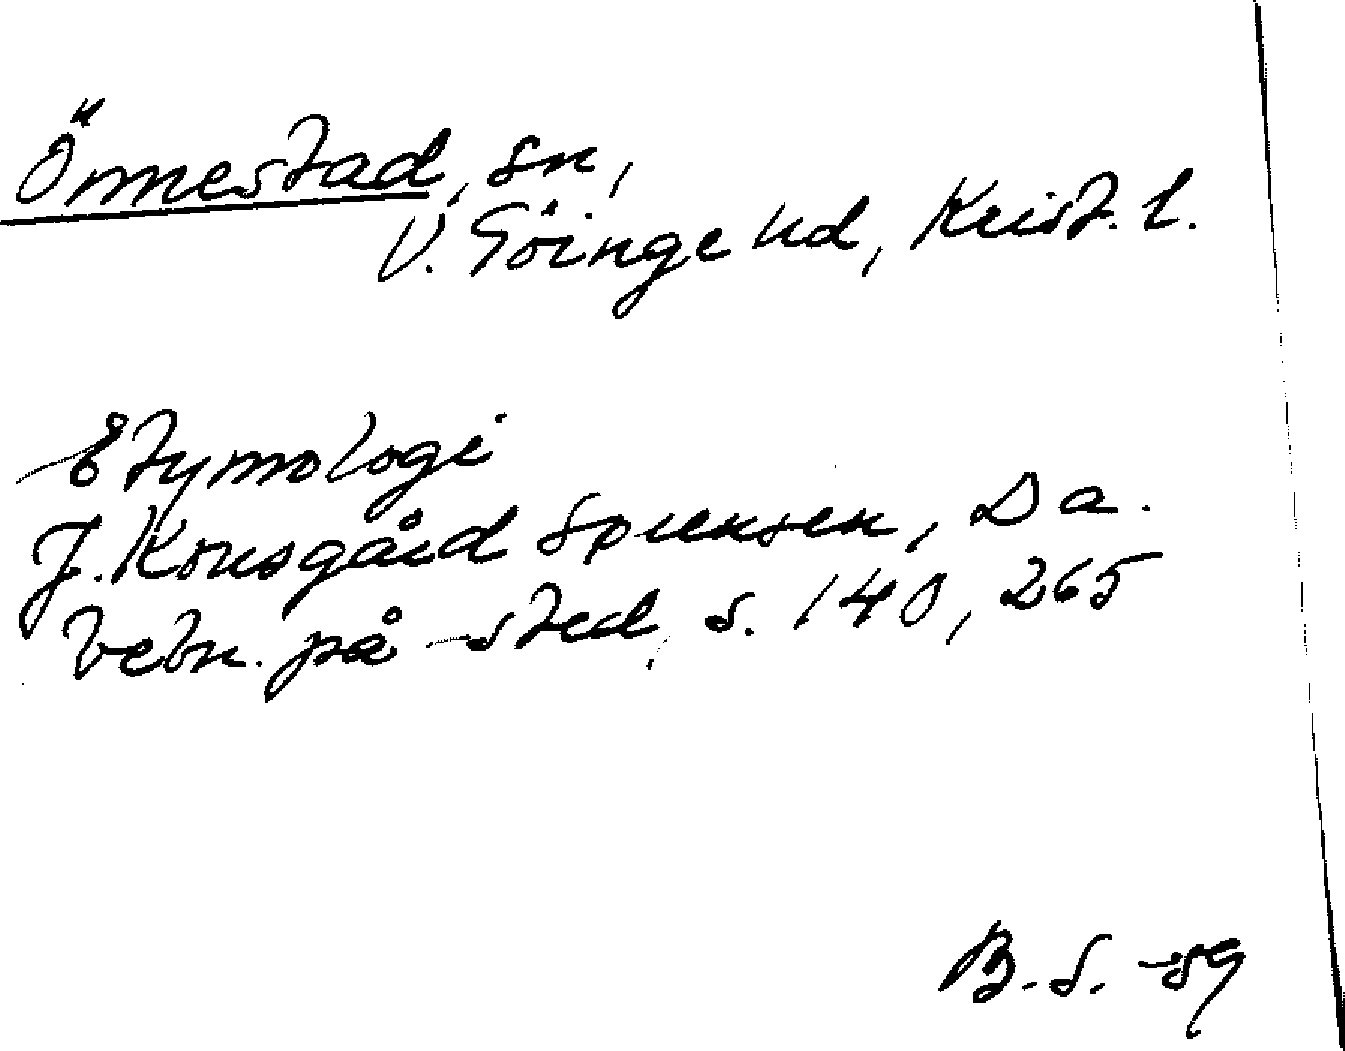 Önnestad, sn,
V. Göinge hd, Krist. l.
Etymologi
J. Kousgård Sørensen, Da.
bebn. på -sted, s. 140, 265
B. S. -59